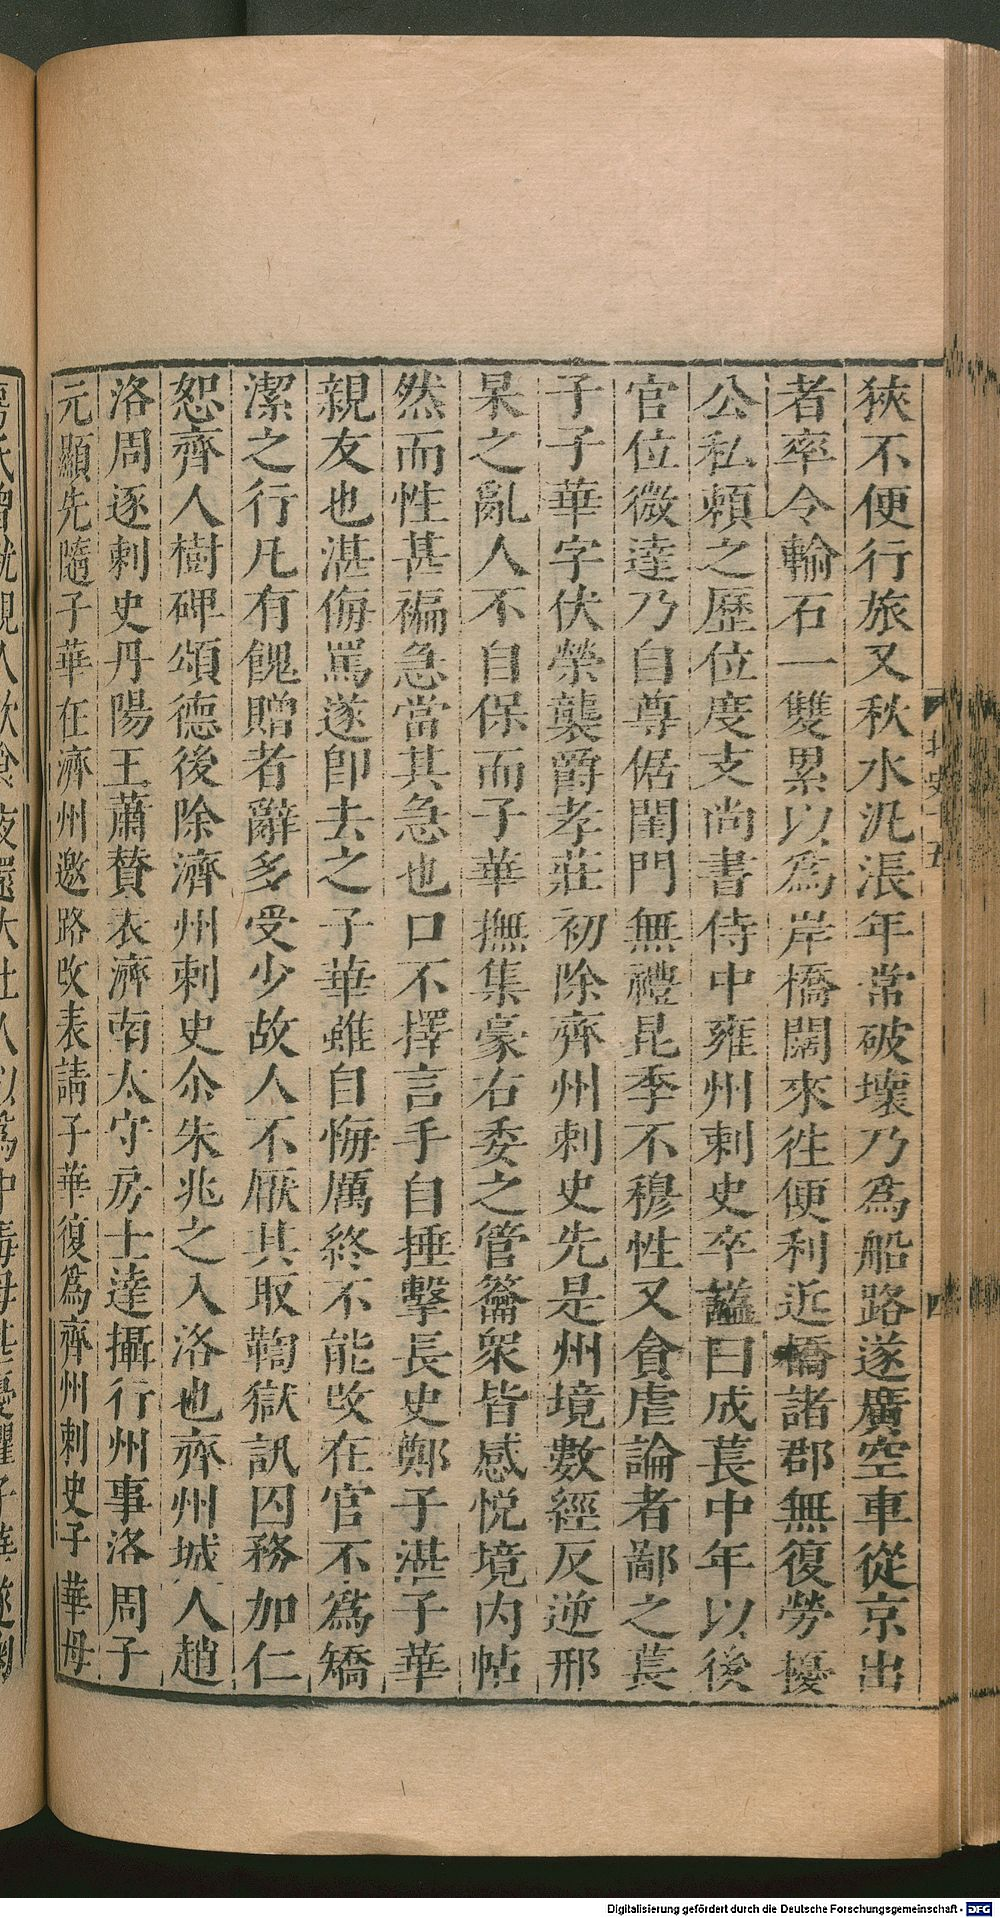 狹不便行旅又秋水汎漲年常破壞乃爲船路遂廣空車從京出
者率令輸石一雙累以爲岸橋闊來往便利近橋諸郡無復勞擾
公私頼之歷位度支尚書侍中雍州刺史卒諡曰成萇中年以後
官位微達乃自尊倨閨門無禮昆季不穆性又貪虐論者鄙之萇
子子華字伏榮襲爵孝莊初除齊州刺史先是州境數經反逆邢
杲之亂人不自保而子華撫集豪右委之管籥衆皆感悅境内帖
然而性甚褊急當其急也口不擇言手自捶擊長史鄭子湛子華
親友也湛侮罵遂卽去之子華雖自悔厲終不能改在官不爲矯
潔之行凡有餽贈者辭多受少故人不厭其取鞫獄訊囚務加仁
恕齊人樹碑頌德後除濟州刺史尒朱兆之入洛也齊州城人趙
洛周逐刺史丹陽王蕭贊表濟南太守房士達攝行州事洛周子
元顯先隨子華在濟州邀路改表請子華復爲齊州刺史子華母
北史十五
四
Digitalisierung gefördert durch die Deutsche Forschungsgemeinschaft - DFG